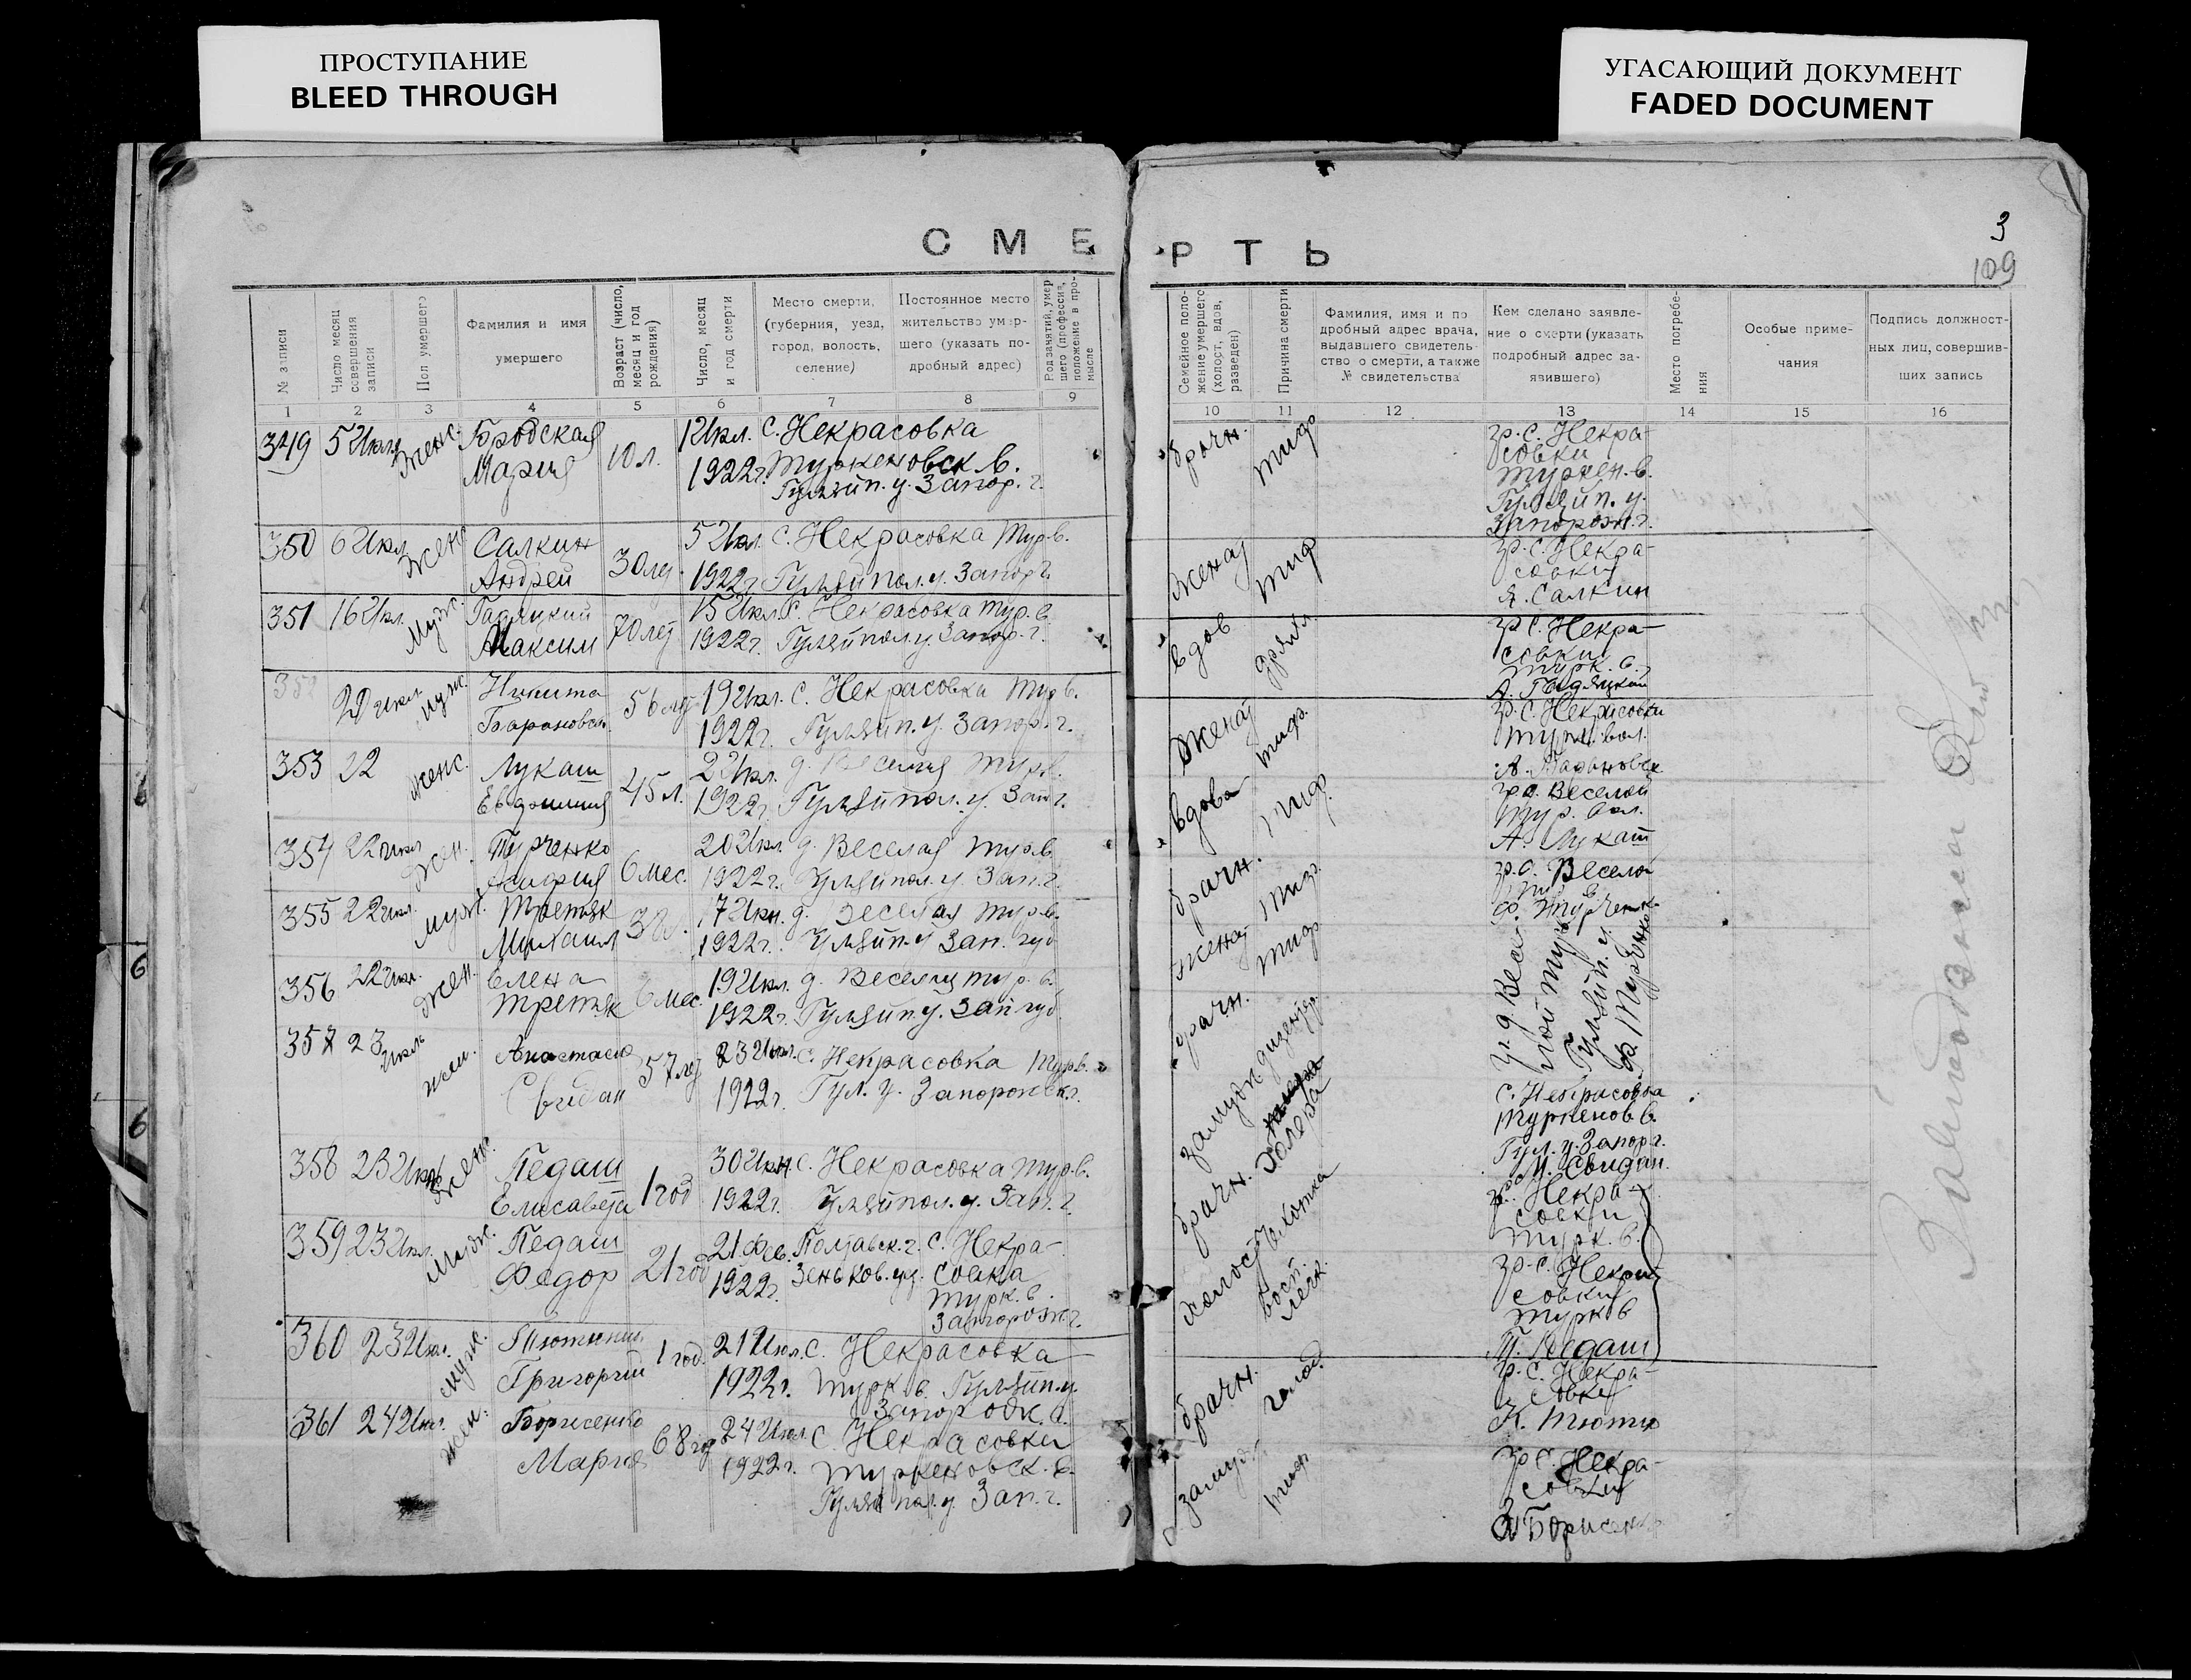 ПРОСТУПАНИЕ
BLEED THROUGH
УГАСАЮЩИЙ ДОКУМЕНТ
FADED DOCUMENT
3
109
СМЕРТЬ
№ записи
Число месяц совершения записи
Пол умершего
Фамилия и имя умершего
Возраст (число, месяц и год рождения)
Число, месяц и год смерти
Место смерти, (губерния, уезд, город, волость, селение)
Постоянное место жительство умер-шего (указать по-дробный адрес)
Род занятий, умер шего (профессия, положение в про-мысле
Семейное поло-жение умершего (холост, вдов, разведен)
Причина смерти
Фамилия, имя и по дробный адрес врача, выдавшего свидетель-ство о смерти, а также № свидетельства
Кем сделано заявле-ние о смерти (указать подробный адрес за-явившего)
Место погребе-ния
Особые приме-чания
Подпись должност-ных лиц, совершив-ших запись
1 2 3 4 5 6 7 8 9 10 11 12 13 14 15 16
349 5 Июл. Женс. Бродская 10 л. 1 Июл. С. Некрасовка
Мария 1922 г. Туркеновск в.
Гуляйп. у. Запор. г.
брачн. тиф гр. С. Некра-
совки
Туркен. в.
Гуляйп. у.
Запорож. г.
350 6 Июл. Женс Салкин 30 ле 5 Июл. С. Некрасовка Тур. в.
Андрей 1922 г Гуляйпол. у. Запор г.
женат тиф гр. С. Некра-
совки
Я. Салкин
351 16 Июл. Муж. Гадяцкий 70 лет 15 Июл. С. Некрасовка Тур. в.
Максим 1922 г. Гуляйпол. у. Запор. г.
вдов дряхл. гр С. Некра-
совки
Турк. в.
А. Гадяцкий
352 20 июл. муж. Никита 56 ле 19 Июл. С. Некрасовка Тур в.
Барановск 1922 г. Гуляйп. у. Запор. г.
Женат тиф. гр. С. Некрасовки
Турк. вол.
А. Барановск
353 22 женс. Лукаш 45 л. 2 Июл. д. Веселая Тур. в.
Евфимия 1922 г. Гуляйпол. у. Зап г.
вдова тиф. гр д. Веселой
Тур. вол.
А. Лукаш
354 22 июл Жен. Турченко 6 мес. 20 Июл. д. Веселая Тур. в.
1922 г. Гуляйпол. у. Зап. г.
брачн. тиф. гр. д. Весело
Ф. Турченк
355 22 июл. муж. Третяк 17 Июн. д. Веселая Тур. в.
Михаил 1922 г. Гуляйп. у Зап. губ
женат тиф
356 22 Июл. Жен. Елена 6 мес. 19 Июл. д. Веселая тур. в.
Третяк 1922 г. Гуляйп. у. Зап губ
брачн. дизентер. гр. д. Весе
лой Тур
Гуляйп. у.
Ф. Турченко
357 23 Июль жен. Анастасия 57 ле 23 Июл. С. Некрасовка Тур. в.
Свидан 1922 г. Гул. у. Запорожск. г.
замуж холера
С. Некрасовка
Туркенов в.
Гул. у. Запор г.
И. Свидан.
358 23 Июль Женс. Педаш 1 год 30 Июн. С. Некрасовка Тур. в.
Елисавета 1922 г. Гуляйпол. у. Зап. г.
брачн. гр. Некра-
совки
Турк. в.
359 23 Июл. Муж. Педаш 21 год 21 Фев. Полтавск. г. С. Некра-
Федор 1922 г. Зеньков. уез. совка
Турк. в.
Запорож г.
холост восп.
легк. гр. С. Некра
совки
Турк в
Т. Педаш
360 23 Июл. муж. 1 год. 21 Июл. С. Некрасовка
Григорий 1922 г. Турк в. Гуляйп. у.
Запорож. г.
брачн. голод гр. С. Некра-
совка
К. Тютю
361 24 Июл. жен. Борисенко 68 год 24 Июл. С. Некрасовки
Мария 1922 г. Туркеновск. в.
Гуляй пол. у. Зап. г.
замуж тиф гр С. Некра-
совки
Борисенко